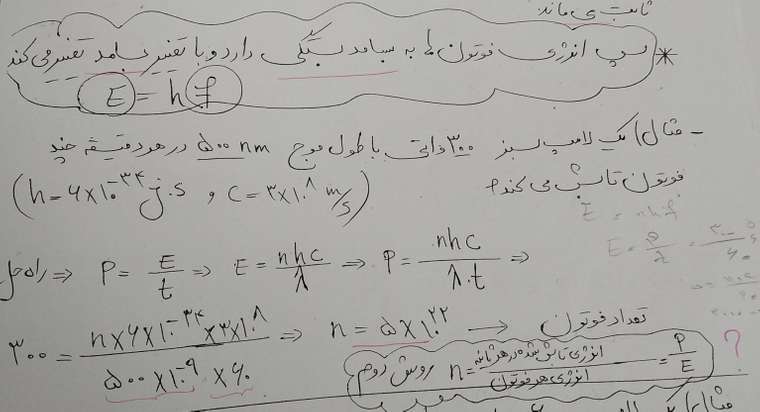 ثابت می ماند
* پس انرژی فوتون ها به بسامد بستگی دارد و با تغییر بسامد تغییر می کند
E = hf
- مثال) یک لامپ سبز ۳۰۰ واتی با طول موج ۵۰۰ nm در هر دقیقه چند
فوتون تابش می کند؟
(h = ۶×۱۰⁻³⁴ j.s و c = ۳×۱۰⁸ m/s)
E = nhf
راه حل ⇒ P = E/t ⇒ E = nhc/λ ⇒ P = nhc/λ.t ⇒
۳۰۰ = n×۶×۱۰⁻³⁴×۳×۱۰⁸ / ۵۰۰×۱۰⁻⁹×۶۰ ⇒ n = ۵×۱۰²² → تعداد فوتون
روش دوم n = انرژی تابش شده در هر ثانیه / انرژی هر فوتون = P/E ?